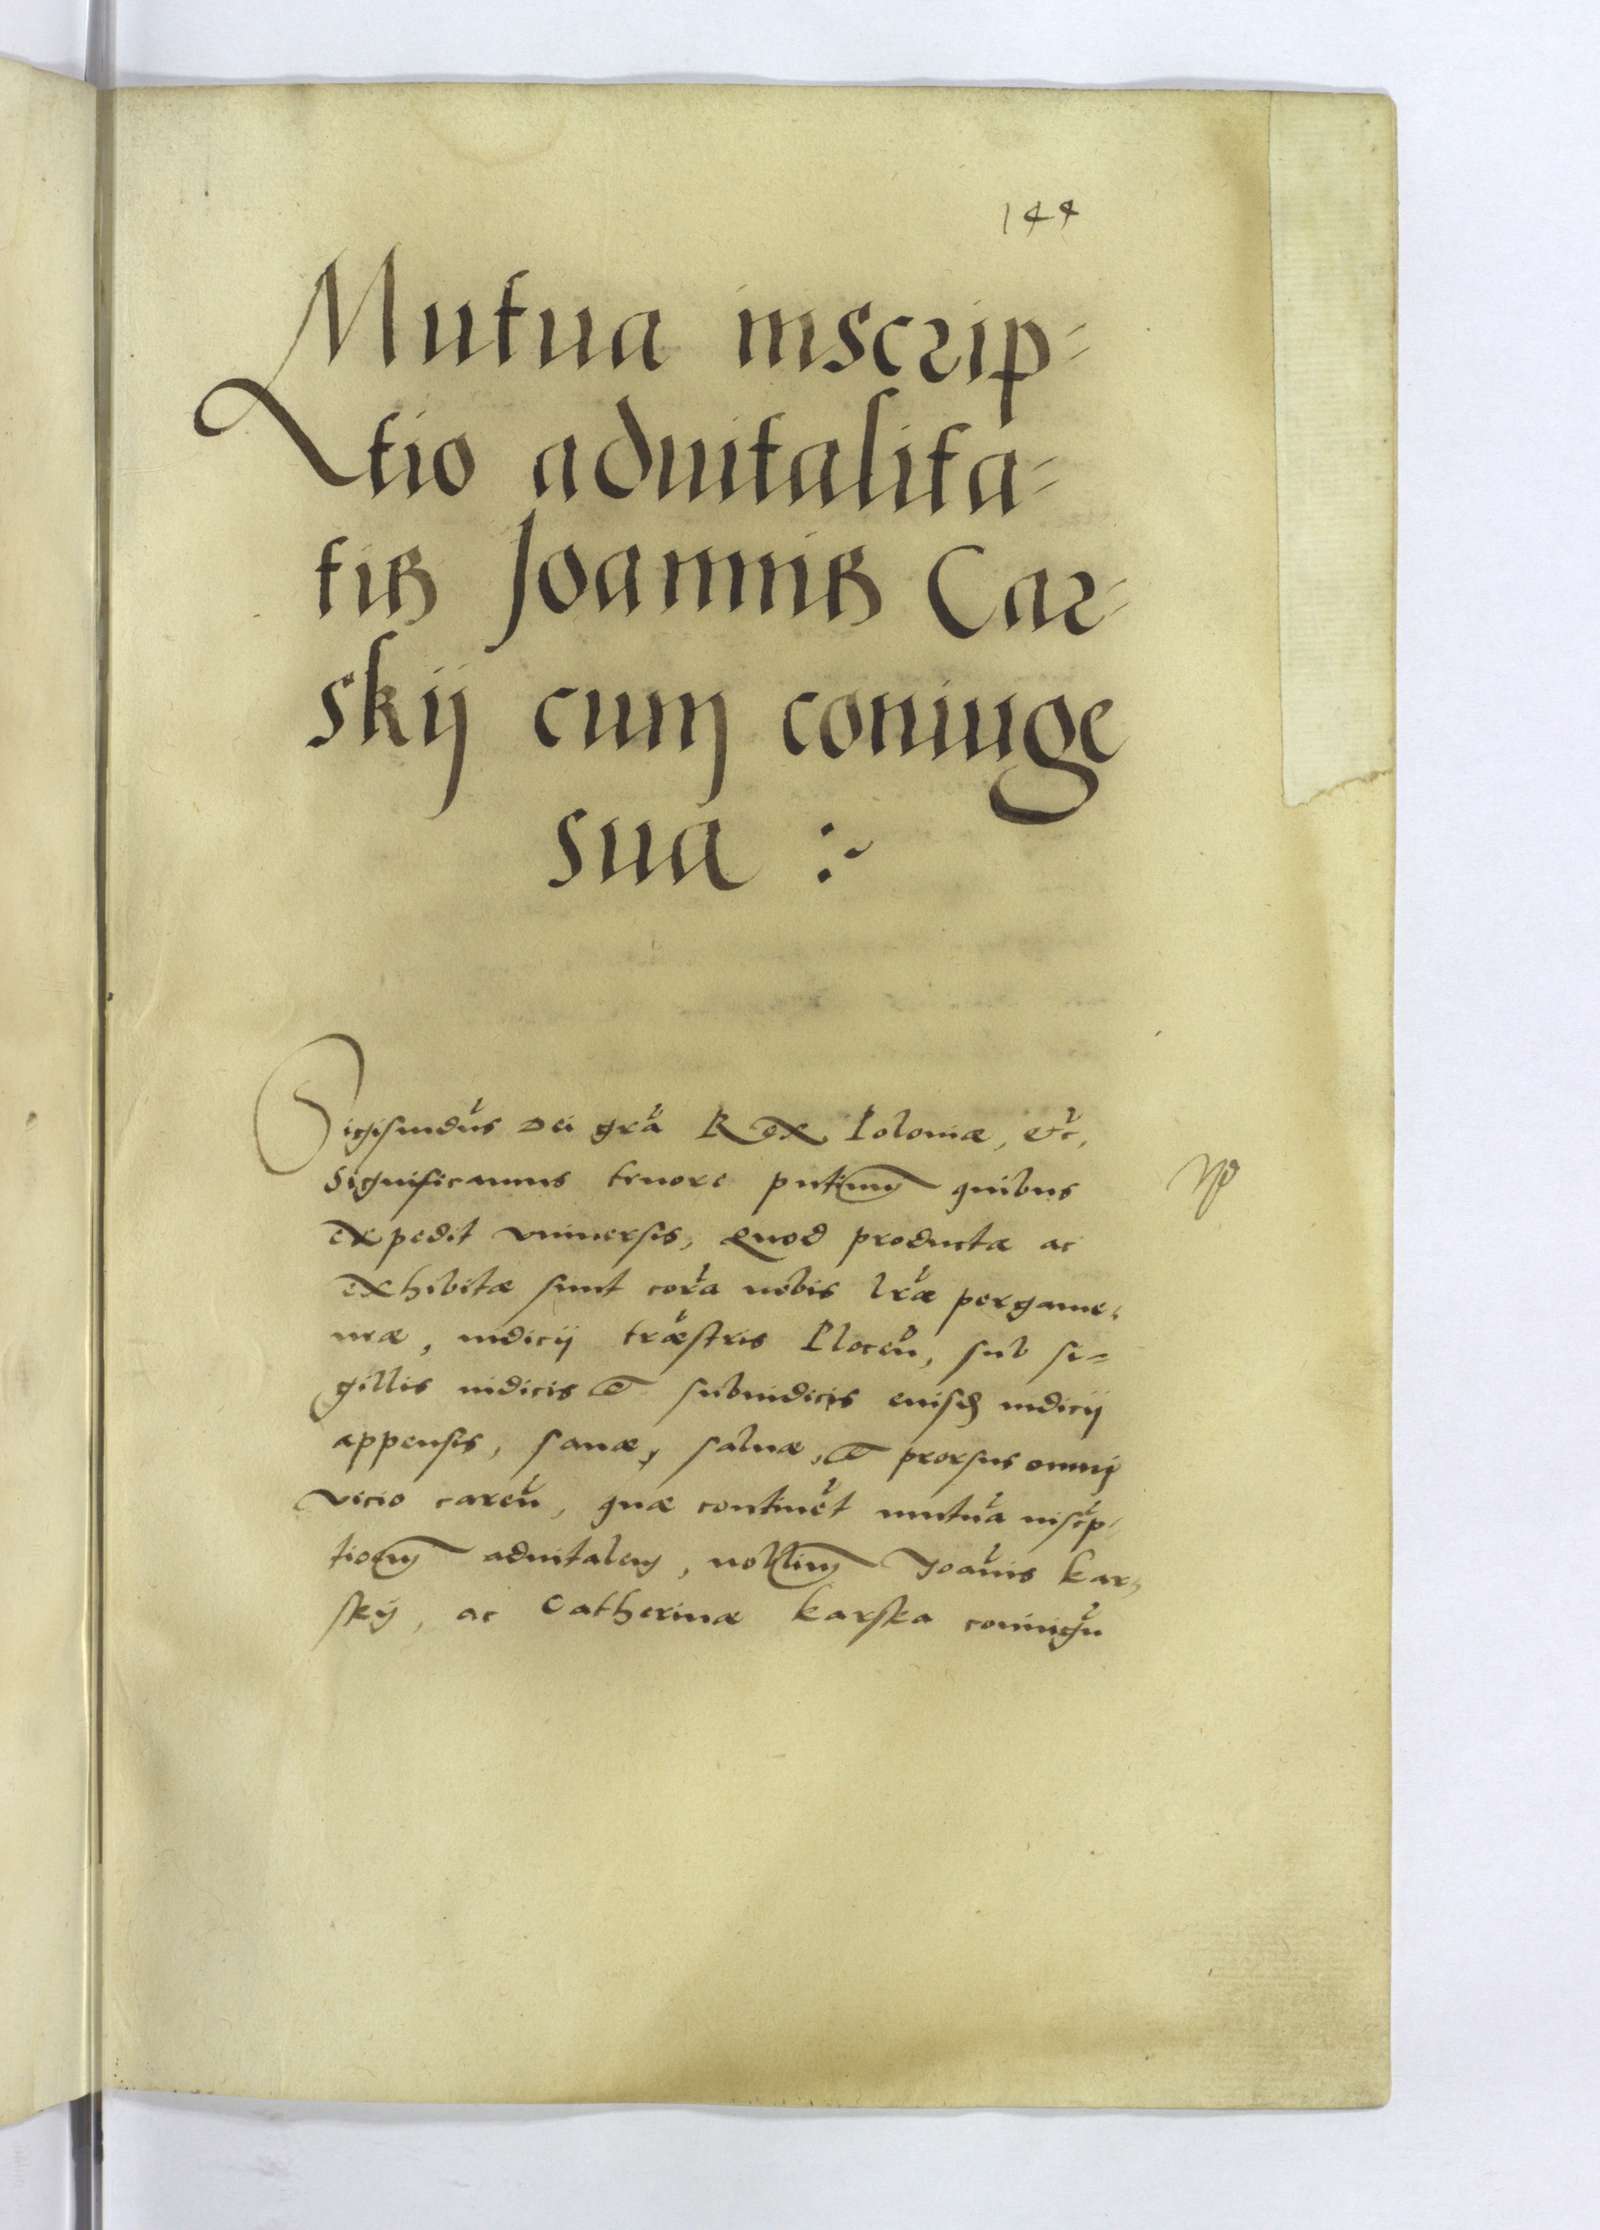 144
Mutua inscrip-
tio aduitalita-
tis Joannis Car-
skij cum coniuge
sua :~
Sigismūdus Dei grã Rex Poloniæ, etc,
Significamus tenore pñtium quibus
expedit vniuersis, Quod productæ ac
exhibitæ sunt corã nobis lr̃æ pergame-
neæ, iudicij tr̃æstris Plocen̄, sub si-
gillis iudicis et subiudicis eiusd iudicij
appensis, sanæ, saluæ, et prorsus omni
vicio caren̄, quæ continẽt mutuã inscrip-
tionem aduitalem, nobilium Joãnis Kar-
skij, ac Catherinæ Karska coniugũ